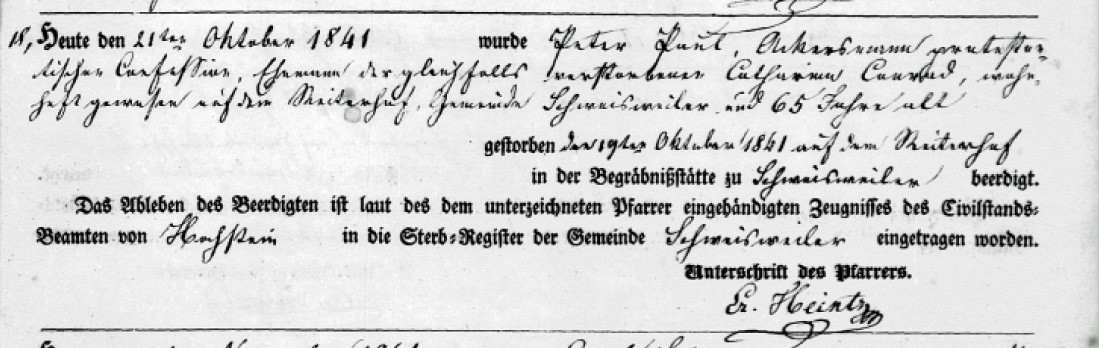 18, Heute den 21ten Oktober 1841 wurde Peter Paul, Ackersmann protestan-
tischer Confession, Ehemann der gleichfalls verstorbenen Catharina Conrad, wohn-
haft gewesen auf dem Reiterhof, Gemeinde Schweisweiler und 65 Jahre alt
gestorben den 19ten Oktober 1841 auf dem Reiterhof
in der Begräbnißstätte zu Schweisweiler beerdigt.
Das Ableben des Beerdigten ist laut des dem unterzeichneten Pfarrer eingehändigten Zeugnisses des Civilstands-
Beamten von Hochstein in die Sterb-Register der Gemeinde Schweisweiler eingetragen worden.
Unterschrift des Pfarrers.
Heintz